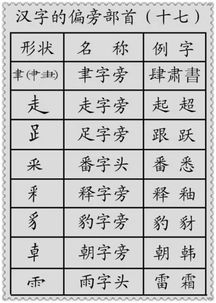 汉字的偏旁部首（十七）
形状 名称 例字
聿(肀⺻) 聿字旁 肆肃书
走 走字旁 起超
𧾷 足字旁 跟跃
釆 番字头 番悉
釆 释字旁 释釉
豸 豹字旁 豹豺
𠦝 朝字旁 朝韩
⻗ 雨字头 雷霜